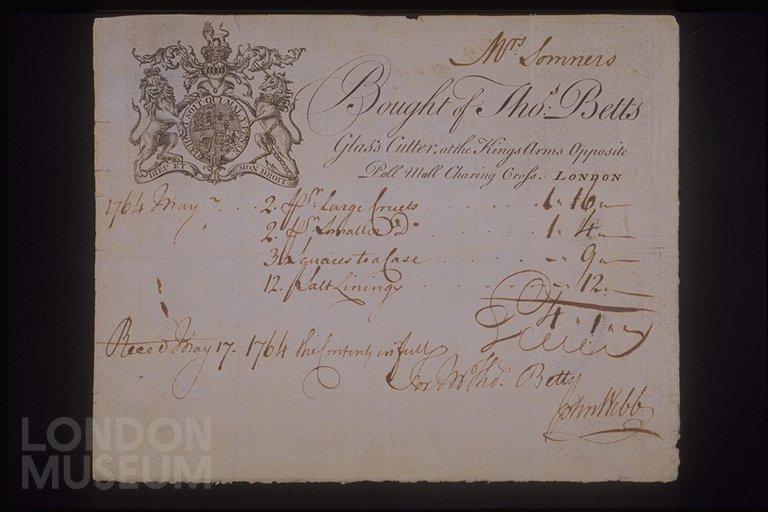 Mrs Somners
HONI SOIT QUI MAL Y PENSE
DIEU ET MON DROIT
Bought of Thos. Betts
Glass Cutter, at the Kings Arms Opposite
Pall Mall Charing Cross. LONDON
1764 May 2 Pr. Large Cruets 1 " 16 "
2 Pr. Smaller Do 1 " 4 "
3 Squares to a Case " 9 "
12 Salt Linings " 12 "
4 " 1 "
Recd May 17. 1764 the Contents in full
for Mr Thos. Betts
John Webb
LONDON
MUSEUM